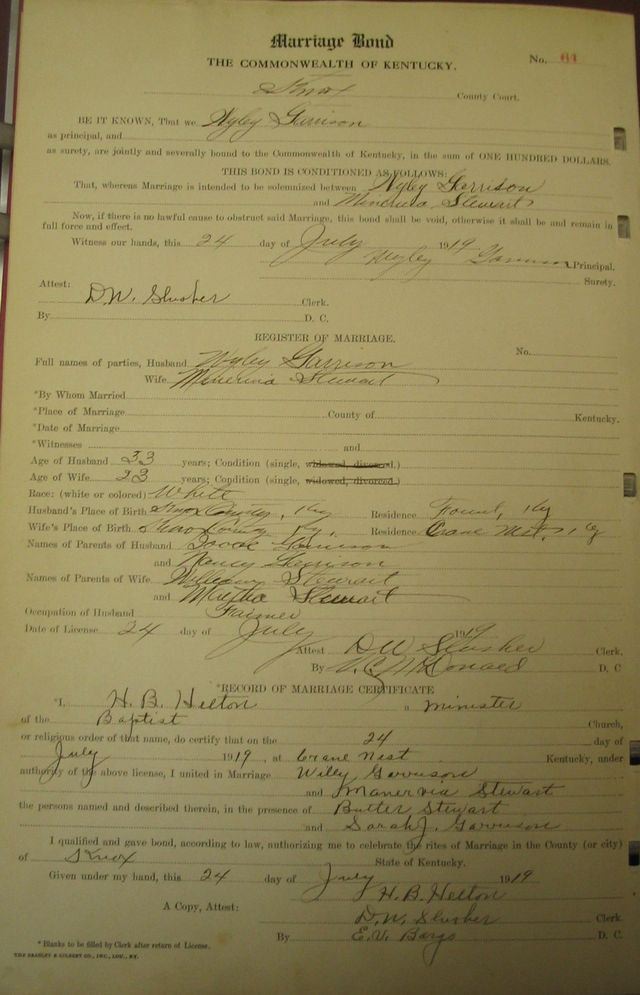 Marriage Bond
THE COMMONWEALTH OF KENTUCKY.
No. 61
Knox County Court.
BE IT KNOWN, That we Wyley Garrison
as principal, and
as surety, are jointly and severally bound to the Commonwealth of Kentucky, in the sum of ONE HUNDRED DOLLARS.
THIS BOND IS CONDITIONED AS FOLLOWS:
That, whereas Marriage is intended to be solemnized between Wyley Garrison
and Minerva Stewart
Now, if there is no lawful cause to obstruct said Marriage, this bond shall be void, otherwise it shall be and remain in
full force and effect.
Witness our hands, this 24 day of July 1919
Wyley Garrison Principal.
Surety.
Attest:
D.W. Slusher Clerk.
By D. C.
REGISTER OF MARRIAGE.
No.
Full names of parties, Husband Wyley Garrison
Wife Minerva Stewart
*By Whom Married
*Place of Marriage County of Kentucky.
*Date of Marriage
*Witnesses and
Age of Husband 33 years; Condition (single, widowed, divorced.)
Age of Wife 23 years; Condition (single, widowed, divorced.)
Race: (white or colored) White
Husband's Place of Birth Knox County, Ky Residence Ky
Wife's Place of Birth Knox County Ky, Residence Crane Nest, Ky
Names of Parents of Husband Garrison
and Nancy Garrison
Names of Parents of Wife William Stewart
and Martha Stewart
Occupation of Husband Farmer
Date of License 24 day of July 1919
Attest D W Slusher Clerk.
By McDonald D. C
*RECORD OF MARRIAGE CERTIFICATE
*I, H. B. Helton a minister
of the Baptist Church,
or religious order of that name, do certify that on the 24 day of
July 1919, at Crane Nest Kentucky, under
authority of the above license, I united in Marriage Willy Garrison
and Manervia Stewart
the persons named and described therein, in the presence of Butler Stewart
and Sarah J. Garrison
I qualified and gave bond, according to law, authorizing me to celebrate the rites of Marriage in the County (or city)
of Knox State of Kentucky.
Given under my hand, this 24 day of July 1919
H. B. Helton
A Copy, Attest: D. W. Slusher Clerk
By E. V. D. C.
*Blanks to be filled by Clerk after return of License.
THE BRADLEY & GILBERT CO., INC., LOU., KY.